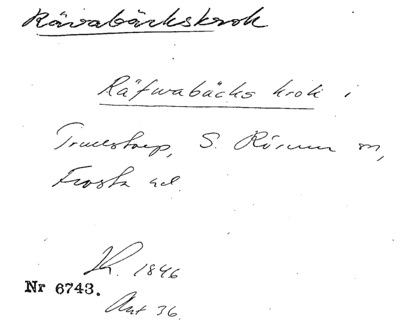 Rävabäckskrok
Räfwabäcks krok i
Truelstorp, S. Rörum sn,
Frosta hd.
Kr. 1846
Nr 6743.
Akt 36.